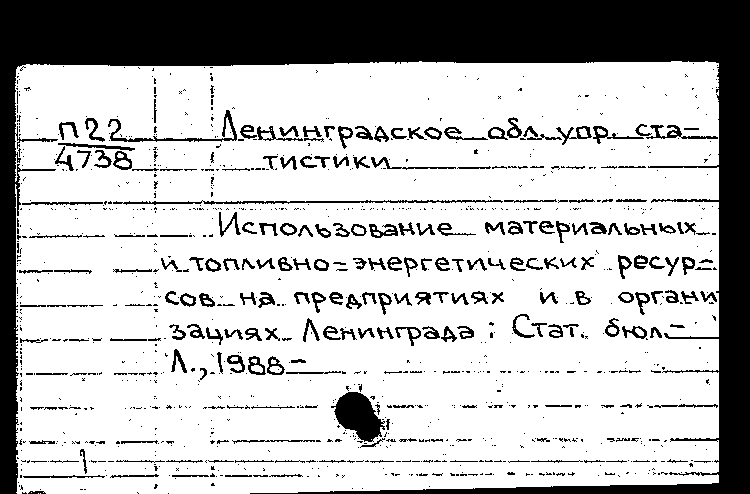 П22 Ленинградское обл. упр. ста-
4738 тистики
Использование материальных
и топливно=энергетических ресур-
сов на предприятиях и в органи
зациях Ленинграда : Стат. бюл.-
Л., 1988-
1